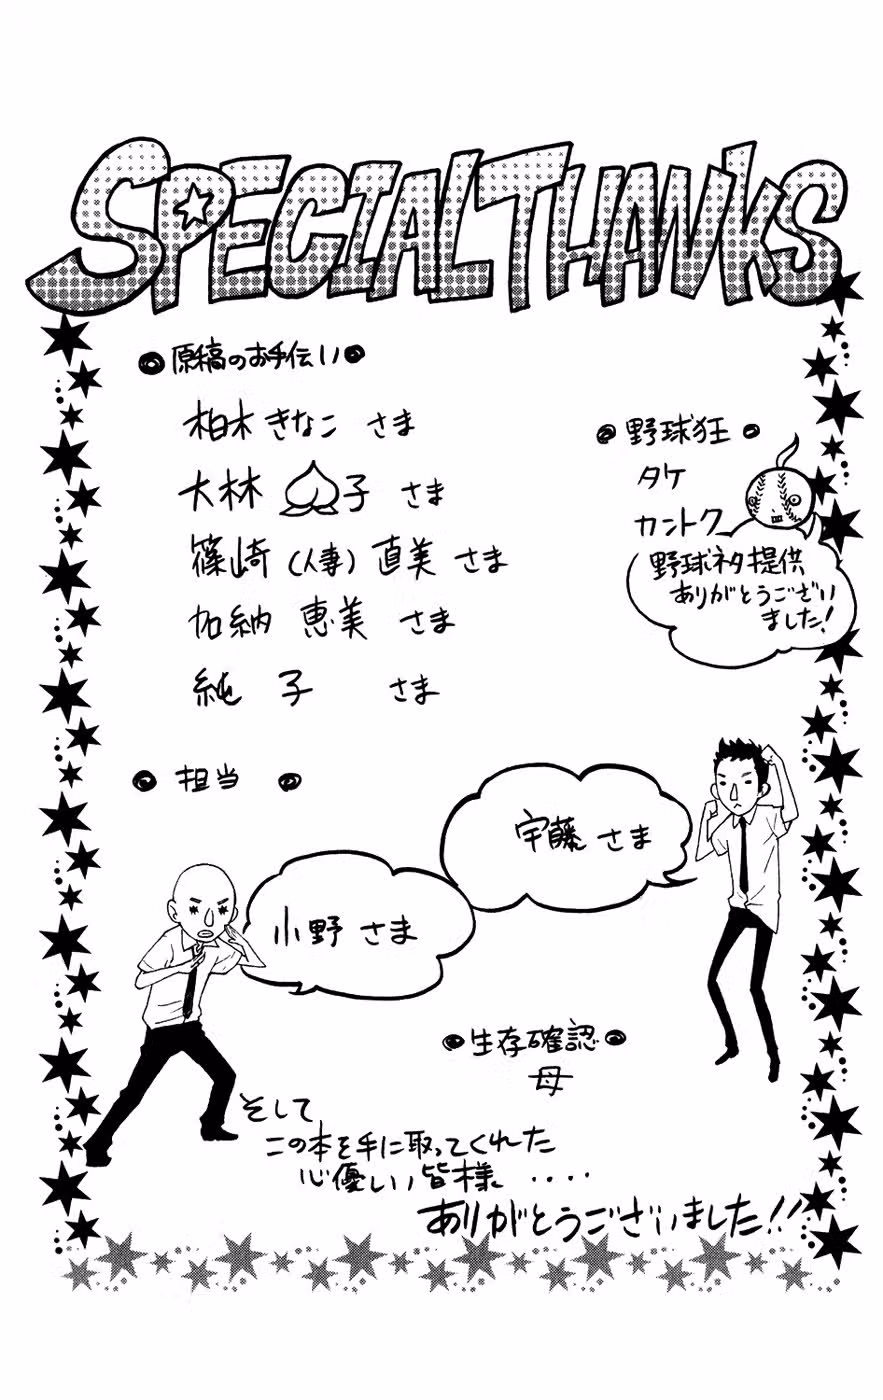 SPECIAL THANKS
◎原稿のお手伝い◎
柏木きなこ さま
大林 子 さま
篠崎(人妻)直美 さま
加納 恵美 さま
純 子 さま
◎野球狂◎
タケ
カントク
野球ネタ提供
ありがとうござい
ました!
◎担当◎
宇藤 さま
小野 さま
◎生存確認◎
母
そして
この本を手に取ってくれた
心優しい皆様 ‥‥
ありがとうございました!!